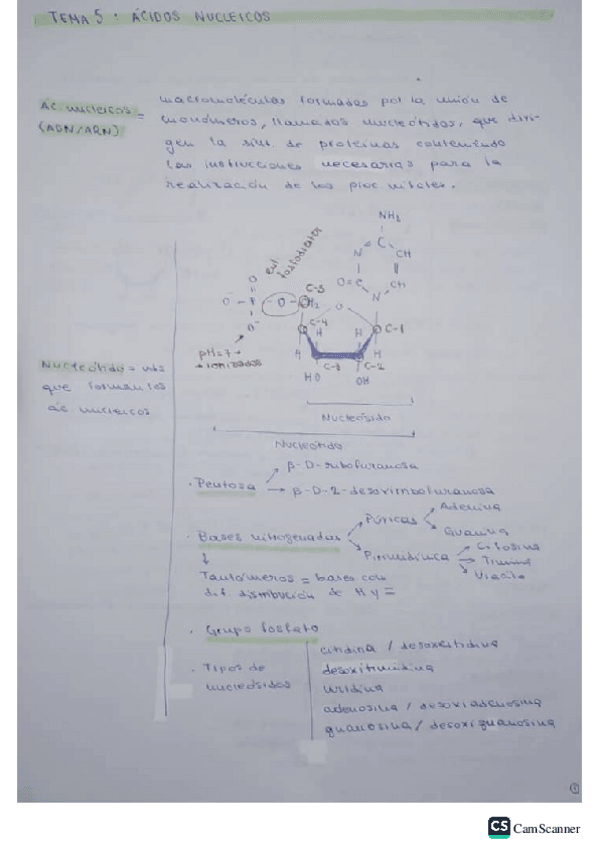 TEMA 5: ÁCIDOS NUCLEICOS
Ác nucleicos = macromoléculas formadas por la unión de
(ADN/ARN) monómeros, llamados nucleótidos, que diri-
gen la sínt. de proteínas conteniendo
las instrucciones necesarias para la
realización de los proc. vitales.
NH2
N C CH
O=C CH
N
enl. fosfodiéster
O⁻ P O C-5
H2
O⁻
O
C-4 C-1
H H H H
C-3 C-2
HO OH
pH=7 →
→ ionizados
Nucleósido
Nucleótido
Nucleótido = uds
que forman los
ác nucleicos
· Pentosa → β-D-ribofuranosa
→ β-D-2-desoxirribofuranosa
· Bases nitrogenadas → Púricas → Adenina
→ Guanina
→ Pirimidínica → Citosina
→ Timina
→ Uracilo
↓
Tautómeros = bases con
dif. distribución de H y =
· Grupo fosfato
· Tipos de
nucleósidos
citidina / desoxicitidina
desoxitimidina
uridina
adenosina / desoxiadenosina
guanosina / desoxiguanosina
1
CS CamScanner